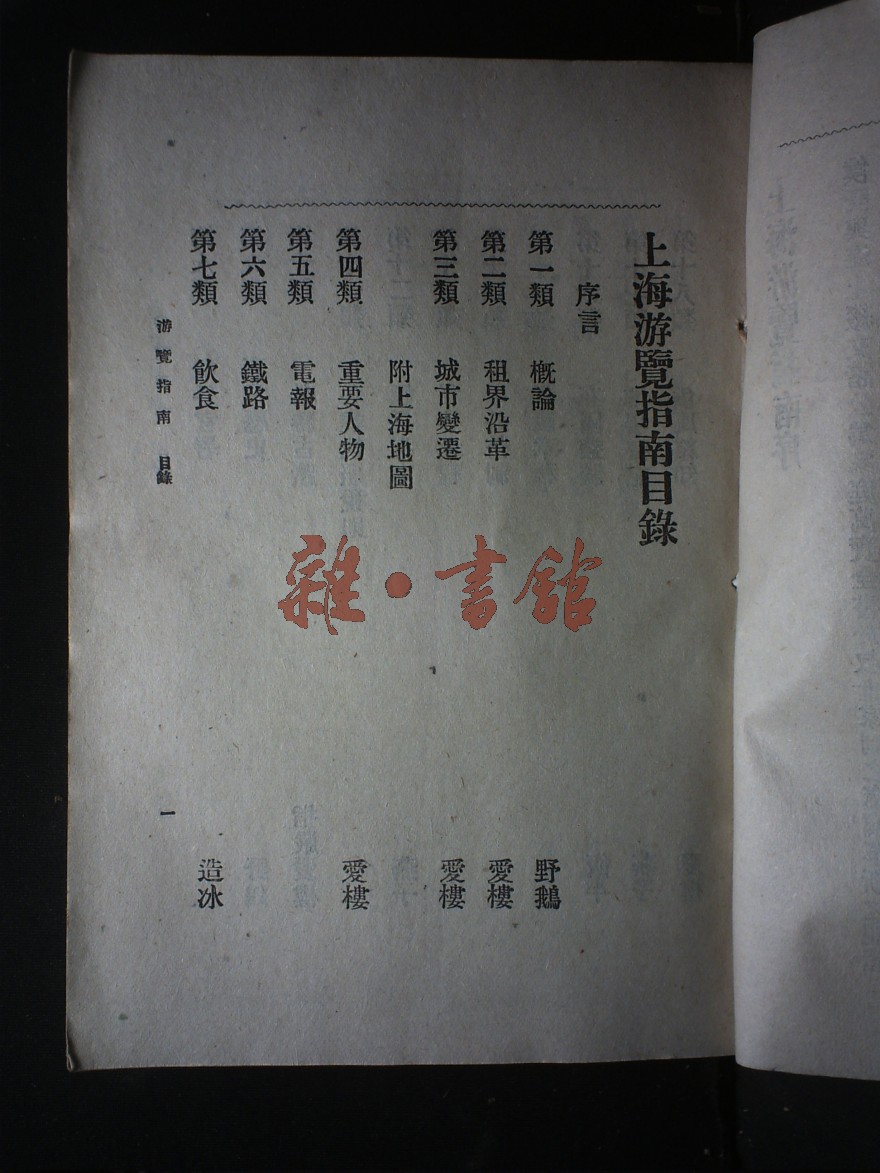 上海游覽指南目錄
序言
第一類 概論 野鵝
第二類 租界沿革 愛樓
第三類 城市變遷 愛樓
附上海地圖
第四類 重要人物 愛樓
第五類 電報
第六類 鐵路
第七類 飲食 造冰
游覽指南 目錄 一
雜·書館